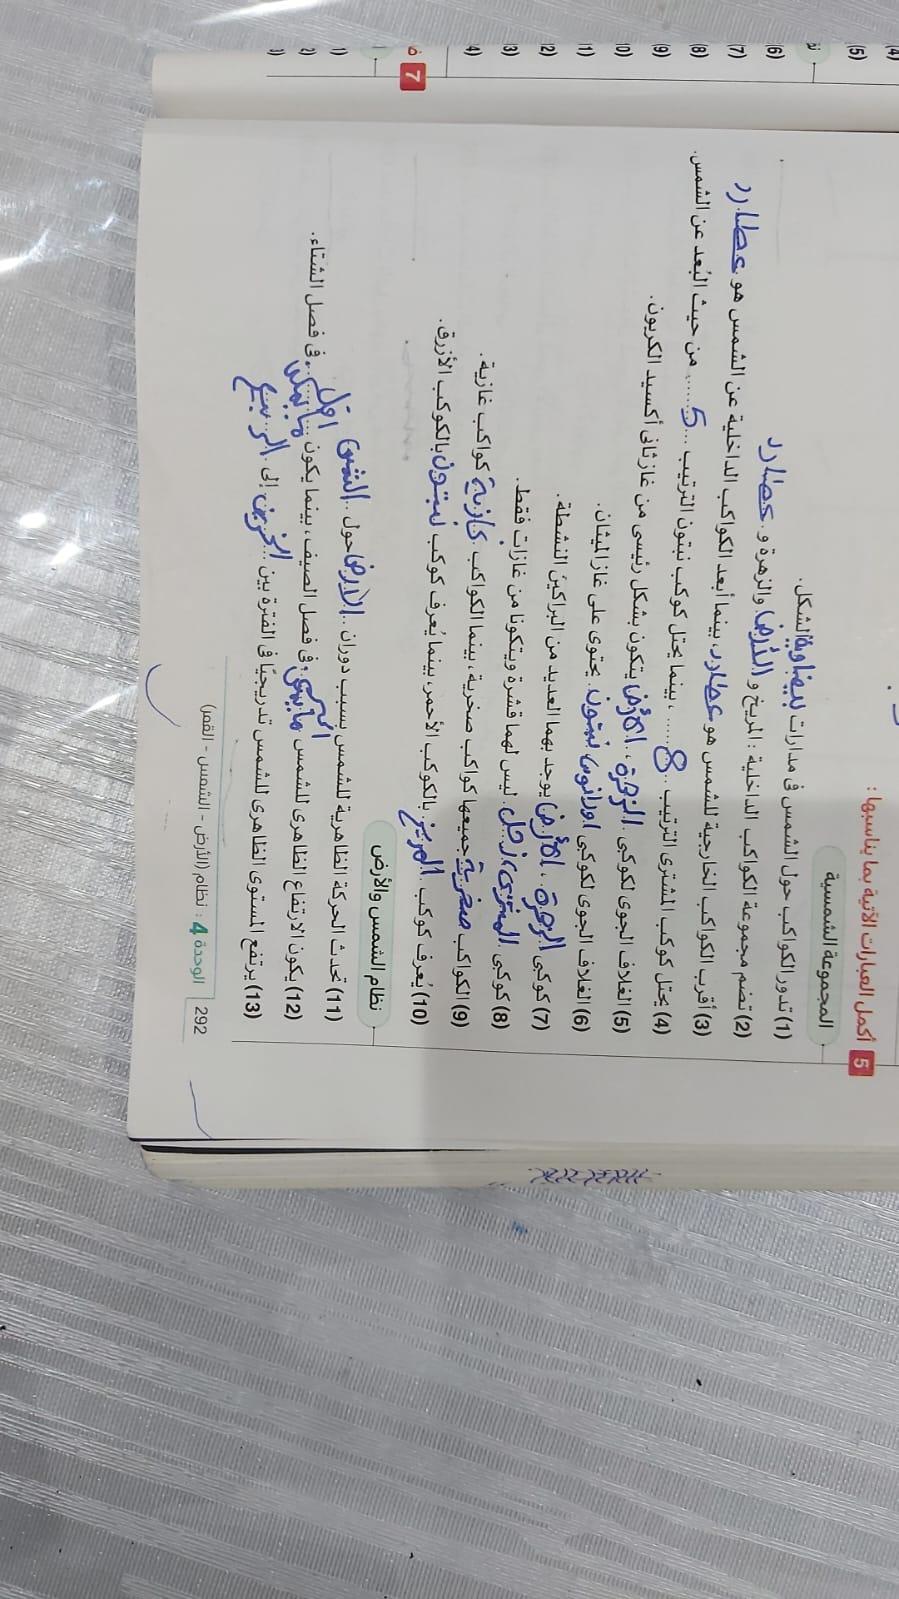 5 أكمل العبارات الآتية بما يناسبها :
المجموعة الشمسية
(1) تدور الكواكب حول الشمس فى مدارات بيضاوية الشكل.
(2) تضم مجموعة الكواكب الداخلية : المريخ و الأرض والزهرة و عطارد
(3) أقرب الكواكب الخارجية للشمس هو عطارد، بينما أبعد الكواكب الداخلية عن الشمس هو عطارد
(4) يحتل كوكب المشترى الترتيب 8 ، بينما يحتل كوكب نبتون الترتيب 5 من حيث البُعد عن الشمس.
(5) الغلاف الجوى لكوكبى الزهرة ، الأرض يتكون بشكل رئيسى من غاز ثانى أكسيد الكربون.
(6) الغلاف الجوى لكوكبى اورانوس نبتون يحتوى على غاز الميثان.
(7) كوكبى الزهرة ، الأرض يوجد بهما العديد من البراكين النشطة.
(8) كوكبى المشترى زحل ليس لهما قشرة ويتكونا من غازات فقط.
(9) الكواكب صخرية جميعها كواكب صخرية، بينما الكواكب غازية كواكب غازية.
(10) يُعرف كوكب المريخ بالكوكب الأحمر، بينما يُعرف كوكب نبتون بالكوكب الأزرق.
نظام الشمس والأرض
(11) تحدث الحركة الظاهرية للشمس بسبب دوران الأرض حول الشمس
(12) يكون الارتفاع الظاهرى للشمس اكبر ما يمكن فى فصل الصيف، بينما يكون اقل ما يمكن فى فصل الشتاء.
(13) يرتفع المستوى الظاهرى للشمس تدريجيًا فى الفترة بين الخريف إلى الربيع
292 الوحدة 4 : نظام (الأرض - الشمس - القمر)
4)
(5)
6)
(7)
(8)
(9)
10)
11)
12)
13)
4)
7
1)
2)